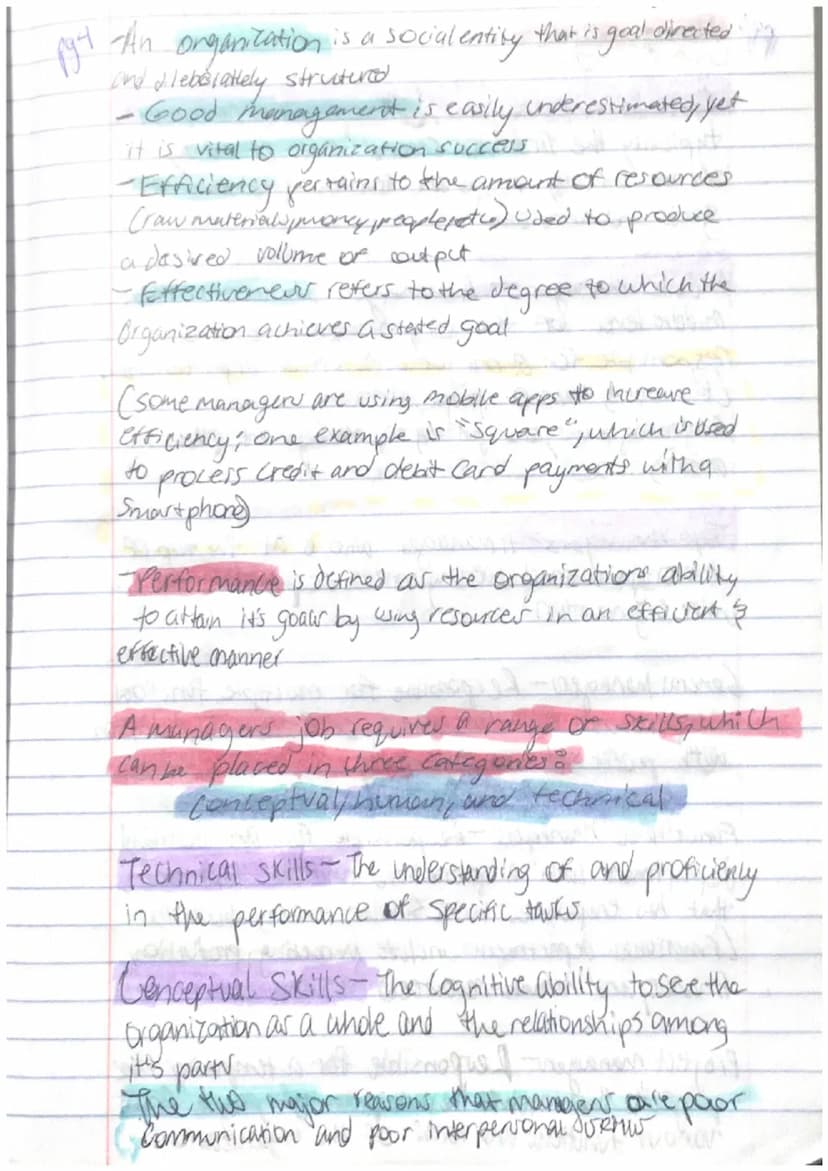 pg4
-An organization is a social entity that is goal directed
and deliberatley strutured
- Good management is easily underestimated, yet
it is vital to organization success
- Efficiency pertains to the amount of resources
(raw materials, money, people, etc) used to produce
a desired volume of output
- Effectiveness refers to the degree to which the
organization achieves a stated goal
(some managers are using mobile apps to increase
efficiency; one example is "Square", which is used
to process credit and debit card payments with a
smartphone)
-Performance is defined as the organizations ability
to attain it's goals by using resources in an efficient &
effective manner
A managers job requires a range of skills, which
can be placed in three categories:
Conceptual, human, and technical
Technical skills - The understanding of and proficienly
in the performance of specific tasks
Conceptual Skills - The cognitive ability to see the
organization as a whole and the relationships among
it's parts
The two major reasons that managers are poor
communication and poor interpersonal